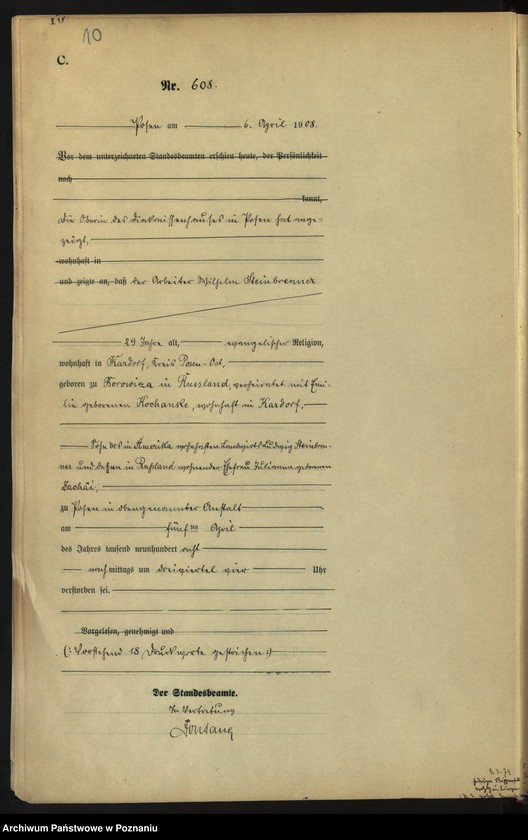 10
C.
Nr. 608.
Posen am 6. April 1908.
Vor dem unterzeichneten Standesbeamten erschien heute, der Persönlichkeit
nach
kannt,
die Oberin des Diakonissenhauses in Posen hat ange-
zeigt,
wohnhaft in
und zeigte an, daß der Arbeiter Wilhelm Steinbrenner
29 Jahre alt, evangelischer Religion,
wohnhaft in Kardorf, Kreis Posen-Ost,
geboren zu Borowiza in Russland, verheiratet mit Emi-
lie geborenen Kochanke, wohnhaft in Kardorf,
Sohn des in Amerika wohnhaften Landwirts Ludwig Steinbren-
ner und dessen in Rußland wohnender Ehefrau Julianna geborenen
Zachäi,
zu Posen in obengenannter Anstalt
am fünften April
des Jahres tausend neunhundert acht
nachmittags um dreiviertel vier Uhr
verstorben sei.
Vorgelesen, genehmigt und
(: Vorstehend 18 Druckworte gestrichen :)
Der Standesbeamte.
In Vertretung
Archiwum Państwowe w Poznaniu